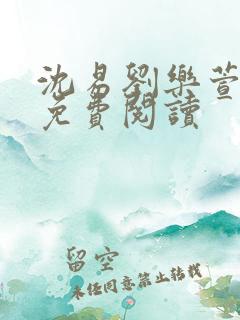 沈易劉樂萱
免費閱讀
留空
未经同意禁止转载